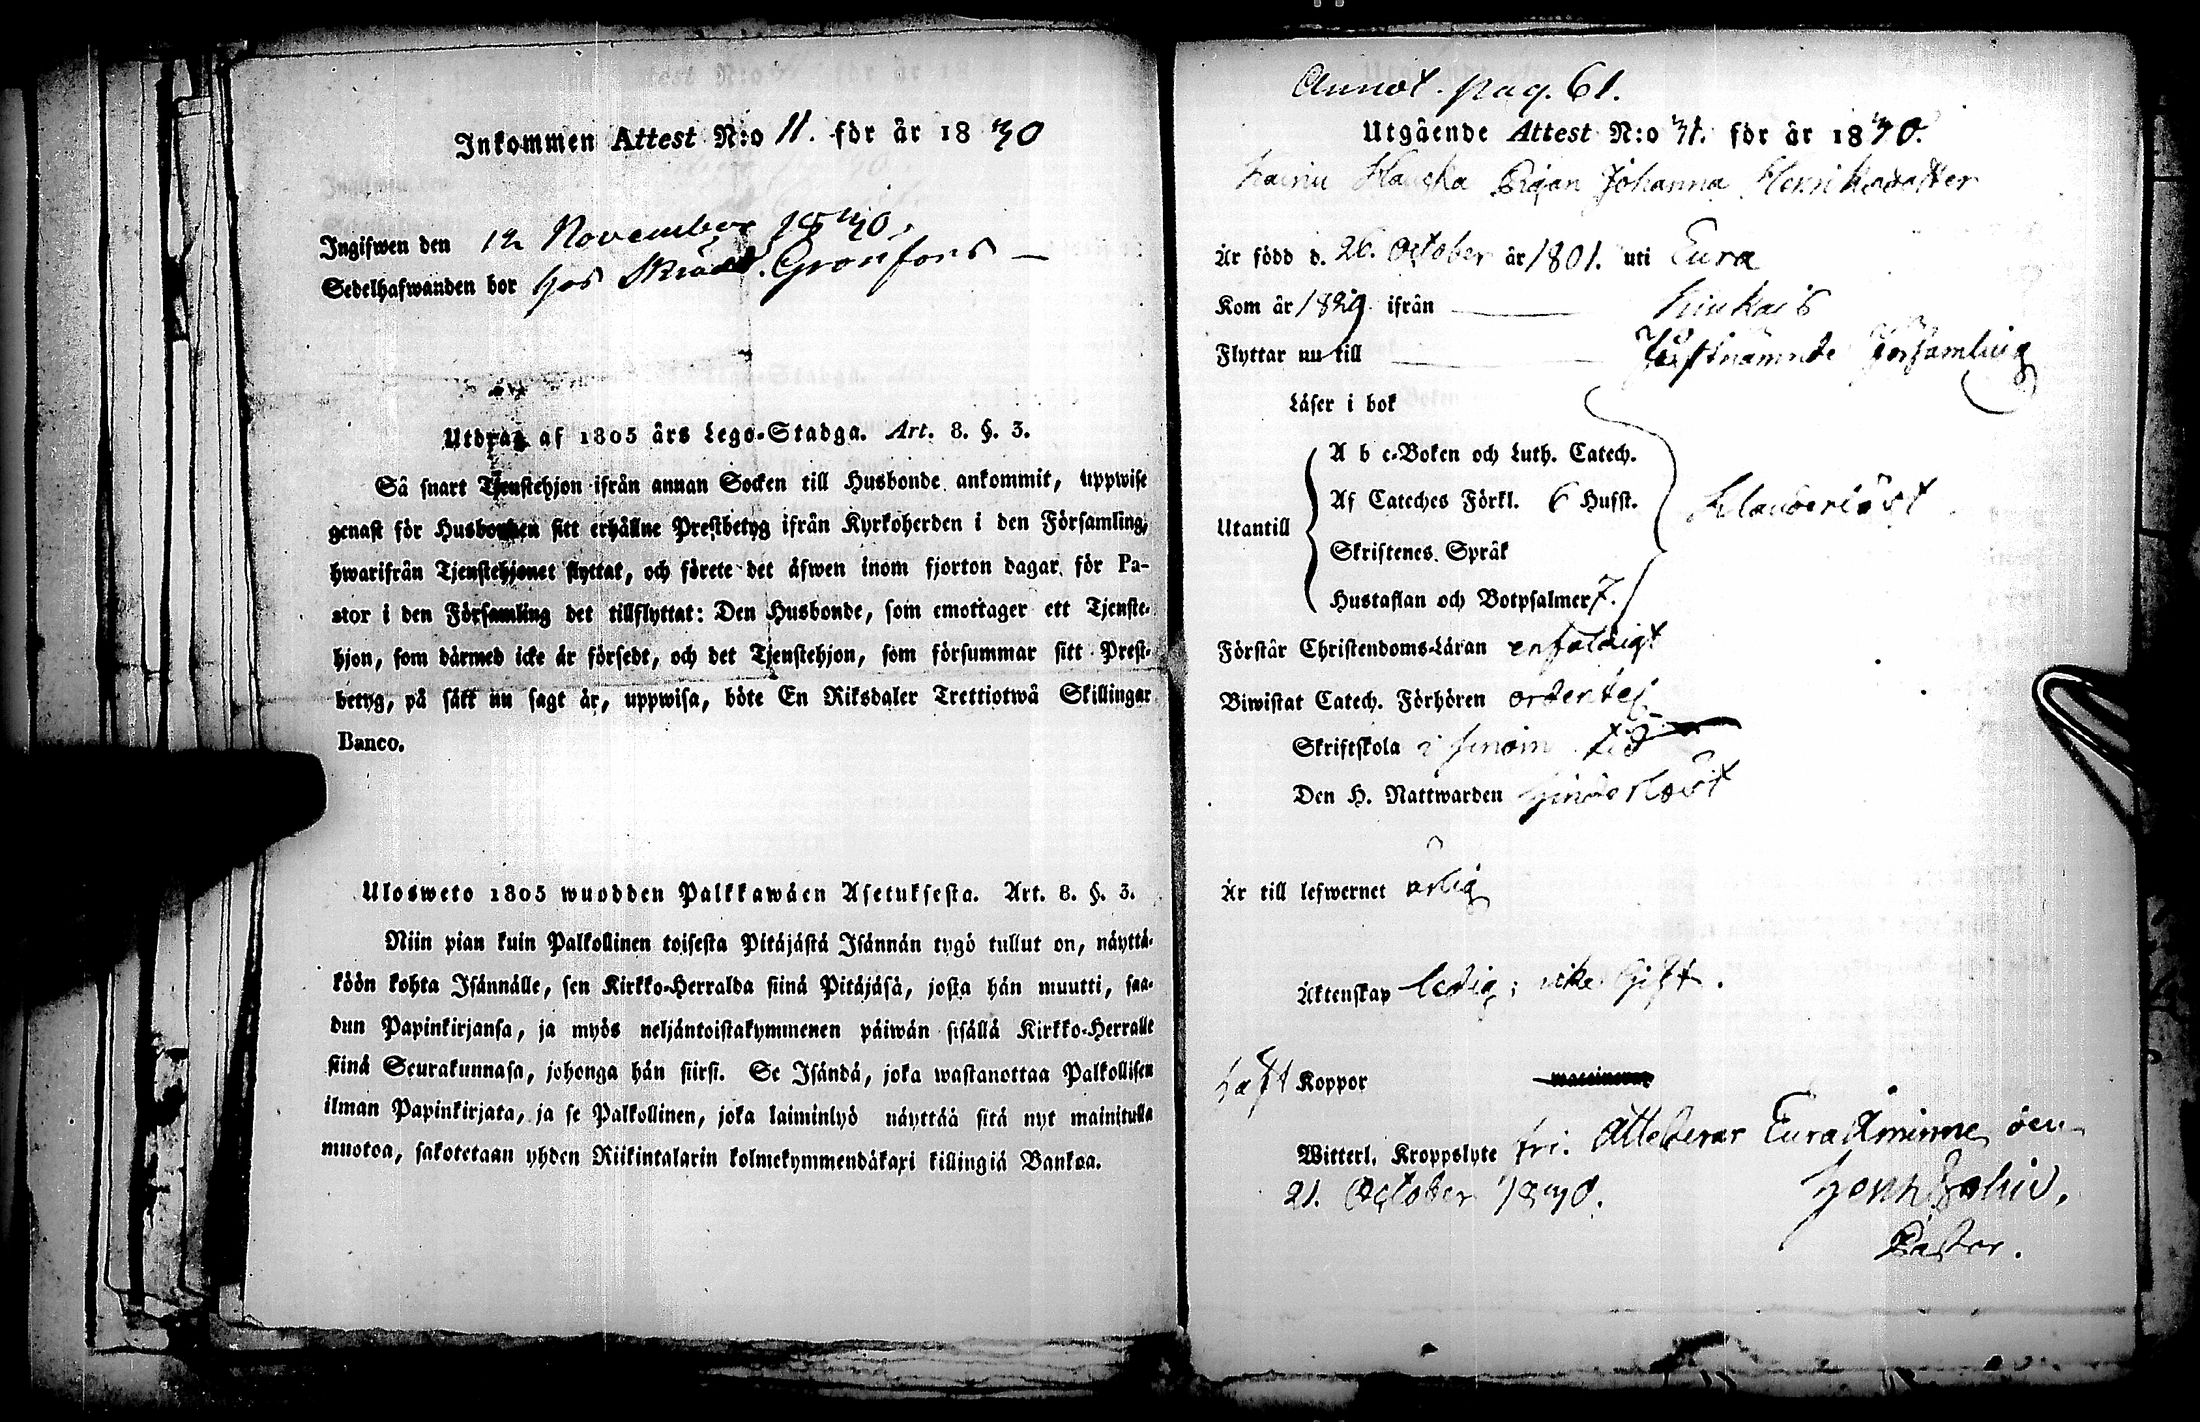 Inkommen Attest N:o 11. för år 1830
Ingifwen den 12 November 1830.
Sedelhafwanden bor hos Skrädd. Gronfors
Utdrag af 1805 års Lego-Stadga. Art. 8. §. 3.
Så snart Tjenstehjon ifrån annan Socken till Husbonde ankommit, uppwise
genast för Husbonden sitt erhållne Prestbetyg ifrån Kyrkoherden i den Församling,
hwarifrån Tjenstehjonet flyttat, och förete det äfwen inom fjorton dagar för Pa-
stor i den Församling det tillflyttat: Den Husbonde, som emottager ett Tjenste-
hjon, som därmed icke är försedt, och det Tjenstehjon, som försummar sitt Prest-
betyg, på sätt nu sagt är, uppwisa, böte En Riksdaler Trettiotwå Skillingar
Banco.
Ulosweto 1805 wuodden Palkkawäen Asetuksesta. Art. 8. §. 3.
Niin pian kuin Palkollinen toisesta Pitäjästä Isännän tygö tullut on, näyttä-
köön kohta Isännälle, sen Kirkko-Herralda siinä Pitäjäsä, josta hän muutti, saa-
dun Papinkirjansa, ja myös neljäntoistakymmenen päiwän sisällä Kirkko-Herralle
siinä Seurakunnasa, johonga hän siirsi. Se Isändä, joka wastanottaa Palkollisen
ilman Papinkirjata, ja se Palkollinen, joka laiminlyö näyttää sitä nyt mainitulla
muotoa, sakotetaan yhden Riikintalarin kolmekymmendäkaxi killingiä Bankoa.
Annot. pag. 61.
Utgående Attest N:o 31. för år 1830.
Pigan Johanna Henriksdotter
Är född d. 26. October år 1801. uti Eura
Kom år 1829 ifrån Kiukais
Flyttar nu till sistnämnde Församling
Läser i bok
Utantill
A b c-Boken och Luth. Catech.
Af Cateches Förkl. 6 Hufst.
Skriftenes Språk
Hustaflan och Botpsalmer 7.
klanderlöst
Förstår Christendoms-Läran enfaldigt
Biwistat Catech. Förhören ordentel.
Skriftskola i sinom tid
Den H. Nattwarden hinderlöst
Är till lefwernet ärlig
Äktenskap ledig; icke Gift.
haft Koppor
Witterl. Kroppslyte fri. Attesterar Eura Åminne den
21. October 1830.
Pastor.